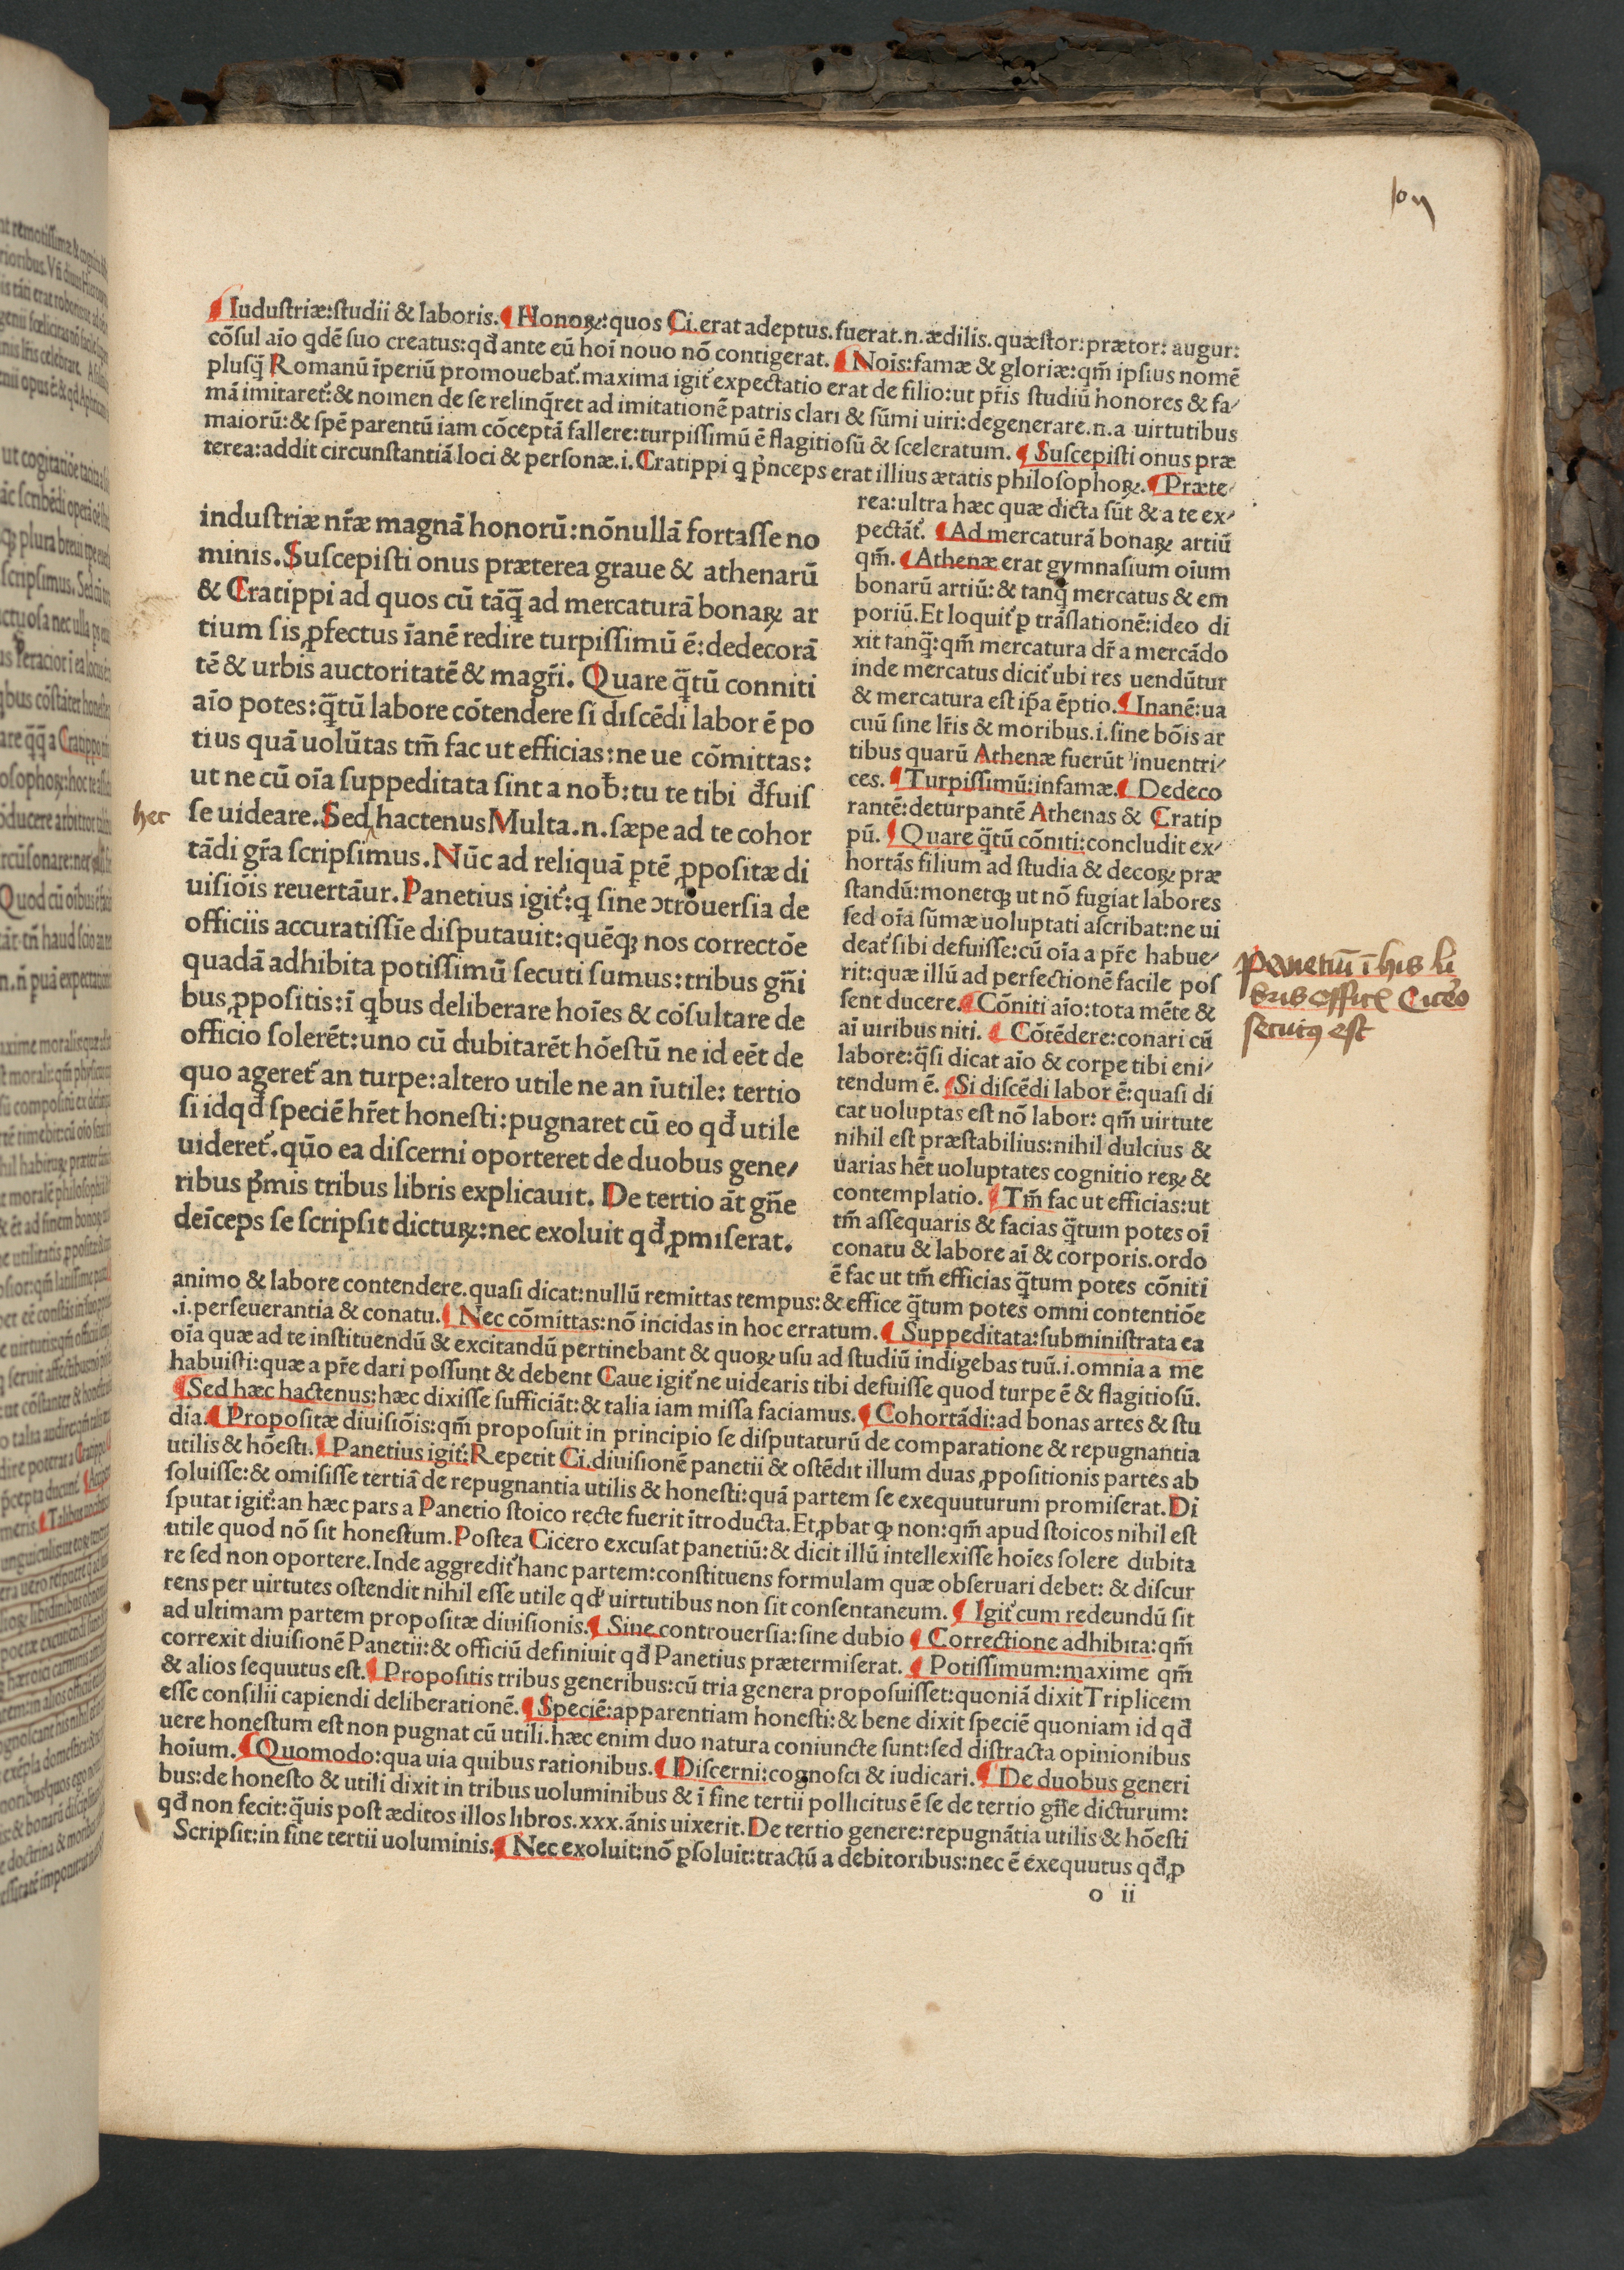 ¶Iudustriæ:ſtudii & laboris.¶Honoꝝ:quos Ci.erat adeptus.fuerat.n.ædilis.quæſtor:prætor: augur:
cõſul aĩo qdẽ ſuo creatus:qđ ante eũ hoĩ nouo nõ contigerat. ¶Noĩs:famæ & gloriæ:qm̃ ipſius nomẽ
pluſq̃ Romanũ ĩperiũ promouebat̃.maxima igit̃ expectatio erat de filio:ut pr̃is ſtudiũ honores & fa/
mã imitaret̃:& nomen de ſe relinq̃ret ad imitationẽ patris clari & ſũmi uiri:degenerare.n.a uirtutibus
maiorũ:& ſpẽ parentũ iam cõceptã fallere:turpiſſimũ ẽ flagitioſũ & ſceleratum. ¶Suſcepiſti onus præ
terea:addit circunſtantiã loci & perſonæ.i.Cratippi q p̃nceps erat illius ætatis philoſophoꝝ.¶Præte/
rea:ultra hæc quæ dicta ſũt & a te ex/
pectãt̃. ¶Ad mercaturã bonaꝝ artiũ
qm̃. ¶Athenæ erat gymnaſium oĩum
bonarũ artiũ: & tanq̃ mercatus & em
poriũ.Et loquit̃ ꝑ trãſlationẽ:ideo di
xit tanq̃:qm̃ mercatura dr̃ a mercãdo
inde mercatus dicit̃ ubi res uendũtur
& mercatura eſt ip̃a ẽptio.¶Inanẽ:ua
cuũ ſine lr̃is & moribus.i.ſine bõis ar
tibus quarũ Athenæ fuerũt inuentri/
ces. ¶Turpiſſimũ:infamæ.¶Dedeco
rantẽ:deturpantẽ Athenas & Cratip
pũ. ¶Quare q̃tũ cõniti:concludit ex/
hortãs filium ad ſtudia & decoꝝ præ
ſtandũ:monetqꝫ ut nõ fugiat labores
ſed oĩa ſũmæ uoluptati aſcribat:ne ui
deat̃ ſibi defuiſſe:cũ oĩa a pr̃e habue/
rit:quæ illũ ad perfectionẽ facile poſ
ſent ducere.¶Cõniti aĩo:tota mẽte &
aĩ uiribus niti. ¶Cõtẽdere:conari cũ
labore:q̃ſi dicat aĩo & corpe tibi eni/
tendum ẽ. ¶Si diſcẽdi labor ẽ:quaſi di
cat uoluptas eſt nõ labor: qm̃ uirtute
nihil eſt præſtabilius:nihil dulcius &
uarias hẽt uoluptates cognitio reꝝ &
contemplatio. ¶Tm̃ fac ut efficias:ut
tm̃ aſſequaris & facias q̃tum potes oĩ
conatu & labore aĩ & corporis.ordo
ẽ fac ut tm̃ efficias q̃tum potes cõniti
induſtriæ nr̃æ magnã honorũ:nõnullã fortaſſe no
minis.Suſcepiſti onus præterea graue & athenarũ
& Cratippi ad quos cũ tãq̃ ad mercaturã bonaꝝ ar
tium ſis ꝓfectus ĩanẽ redire turpiſſimũ ẽ:dedecorã
tẽ & urbis auctoritatẽ & magr̃i. Quare q̃tũ conniti
aĩo potes:q̃tũ labore cõtendere ſi diſcẽdi labor ẽ po
tius quã uolũtas tm̃ fac ut efficias:ne ue cõmittas:
ut ne cũ oĩa ſuppeditata ſint a nob̃:tu te tibi đfuiſ
ſe uideare.Sed hactenus Multa.n.ſæpe ad te cohor
tãdi gr̃a ſcripſimus.Nũc ad reliquã ptẽ ꝓpoſitæ di
uiſiõis reuertãur.Panetius igit̃:q ſine ↄtrouerſia de
officiis accuratiſſĩe diſputauit:quẽqꝫ nos correctõe
quadã adhibita potiſſimũ ſecuti ſumus:tribus gñi
bus ꝓpoſitis:ĩ qbus deliberare hoĩes & cõſultare de
officio ſolerẽt:uno cũ dubitarẽt hõeſtũ ne id eẽt de
quo ageret̃ an turpe:altero utile ne an ĩutile: tertio
ſi idqđ ſpeciẽ hr̃et honeſti:pugnaret cũ eo qđ utile
uideret̃.qũo ea diſcerni oporteret de duobus gene/
ribus p̃mis tribus libris explicauit. De tertio ãt gñe
deĩceps ſe ſcripſit dictuꝝ:nec exoluit qđ ꝓmiſerat.
hec
Panetiũ ĩ his li
bris Cicero
secutus est
animo & labore contendere.quaſi dicat:nullũ remittas tempus:& effice q̃tum potes omni contentiõe
.i.perſeuerantia & conatu.¶Nec cõmittas:nõ incidas in hoc erratum.¶Suppeditata:ſubminiſtrata ea
oĩa quæ ad te inſtituendũ & excitandũ pertinebant & quoꝝ uſu ad ſtudiũ indigebas tuũ.i.omnia a me
habuiſti:quæ a pr̃e dari poſſunt & debent Caue igit̃ ne uidearis tibi defuiſſe quod turpe ẽ & flagitioſũ.
¶Sed hæc hactenus:hæc dixiſſe ſufficiãt:& talia iam miſſa faciamus.¶Cohortãdi:ad bonas artes & ſtu
dia.¶Propoſitæ diuiſiõis:qm̃ propoſuit in principio ſe diſputaturũ de comparatione & repugnantia
utilis & hõeſti.¶Panetius igit̃:Repetit Ci.diuiſionẽ panetii & oſtẽdit illum duas ꝓpoſitionis partes ab
ſoluiſſe:& omiſiſſe tertiã de repugnantia utilis & honeſti:quã partem ſe exequuturum promiſerat.Di
ſputat igit̃:an hæc pars a Panetio ſtoico recte fuerit ĩtroducta.Et ꝓbat ꝙ non:qm̃ apud ſtoicos nihil eſt
utile quod nõ ſit honeſtum.Poſtea Cicero excuſat panetiũ:& dicit illũ intellexiſſe hoĩes ſolere dubita
re ſed non oportere.Inde aggredit̃ hanc partem:conſtituens formulam quæ obſeruari debet: & diſcur
rens per uirtutes oſtendit nihil eſſe utile qđ uirtutibus non ſit conſentaneum. ¶Igit̃ cum redeundũ ſit
ad ultimam partem propoſitæ diuiſionis.¶Sine controuerſia:ſine dubio ¶Correctione adhibita:qm̃
correxit diuiſionẽ Panetii:& officiũ definiuit qđ Panetius prætermiſerat. ¶Potiſſimum:maxime qm̃
& alios ſequutus eſt.¶Propoſitis tribus generibus:cũ tria genera propoſuiſſet:quoniã dixit Triplicem
eſſe conſilii capiendi deliberationẽ.¶Speciẽ:apparentiam honeſti:& bene dixit ſpeciẽ quoniam id qđ
uere honeſtum eſt non pugnat cũ utili.hæc enim duo natura coniuncte ſunt:ſed diſtracta opinionibus
hoĩum.¶Quomodo:qua uia quibus rationibus.¶Diſcerni:cognoſci & iudicari.¶De duobus generi
bus:de honeſto & utili dixit in tribus uoluminibus & ĩ fine tertii pollicitus ẽ ſe de tertio gñe dicturum:
qđ non fecit:q̃uis poſt æditos illos libros.xxx.ãnis uixerit.De tertio genere:repugnãtia utilis & hõeſti
Scripſit:in fine tertii uoluminis.¶Nec exoluit:nõ ꝑſoluit:tractũ a debitoribus:nec ẽ exequutus qđ ꝓ
o ii